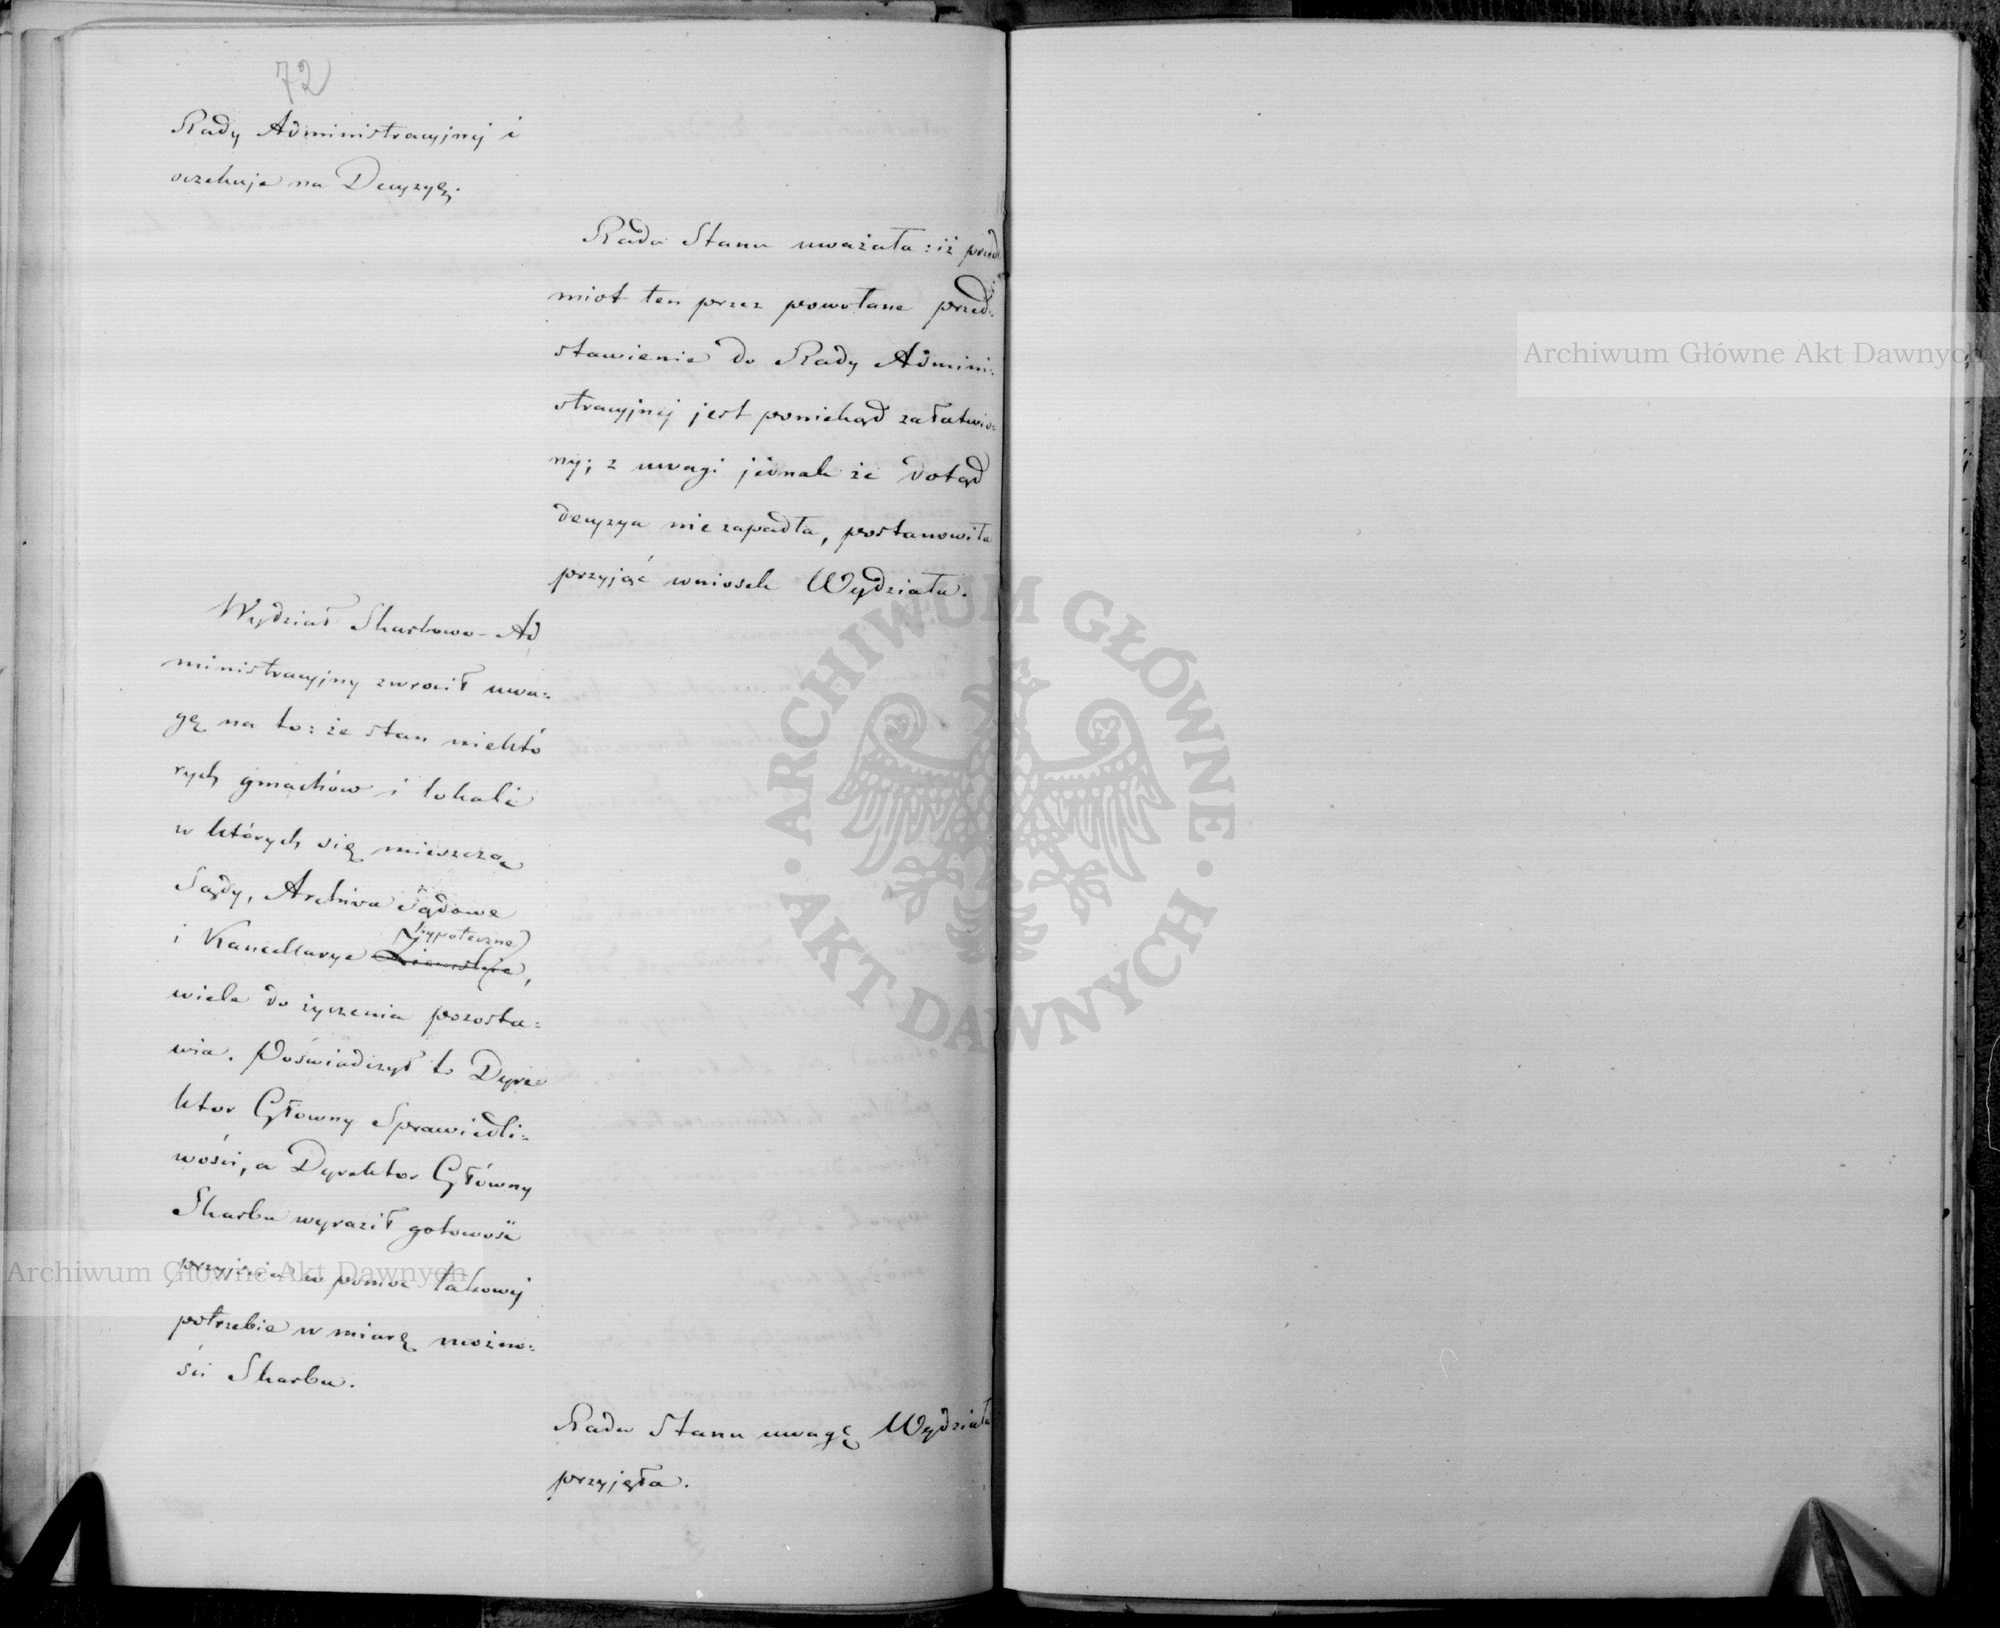 72
Rady Administracyjnej i
oczekuje na Decyzyę.
Rada Stanu uważała: iż przed
miot ten przez powołane przed:
stawienie do Rady Admini:
stracyjnej jest poniekąd załatwio:
ny; z uwagi jednak że dotąd
decyzya nie zapadła, postanowiła
przyjąć wniosek Wydziału.
Wydział Skarbowo-Ad
ministracyjny zwrócił uwa:
gę na to: że stan niektó
rych gmachów i lokali
w których się mieszczą
Sądy, Archiva Sądowe
hypoteczne
i Kancellarye Ziemskie,
wiele do życzenia pozosta:
wia. Poświadczył to Dyre
ktor Główny Sprawiedli:
wości, a Dyrektor Główny
Skarbu wyraził gotowość
przyjścia w pomoc takowej
potrzebie w miarę możno:
ści Skarbu.
Rada Stanu uwagę Wydziału
przyjęła.
Archiwum Główne Akt Dawnych
Archiwum Główne Akt Dawnych
ARCHIWUM GŁÓWNE
AKT DAWNYCH